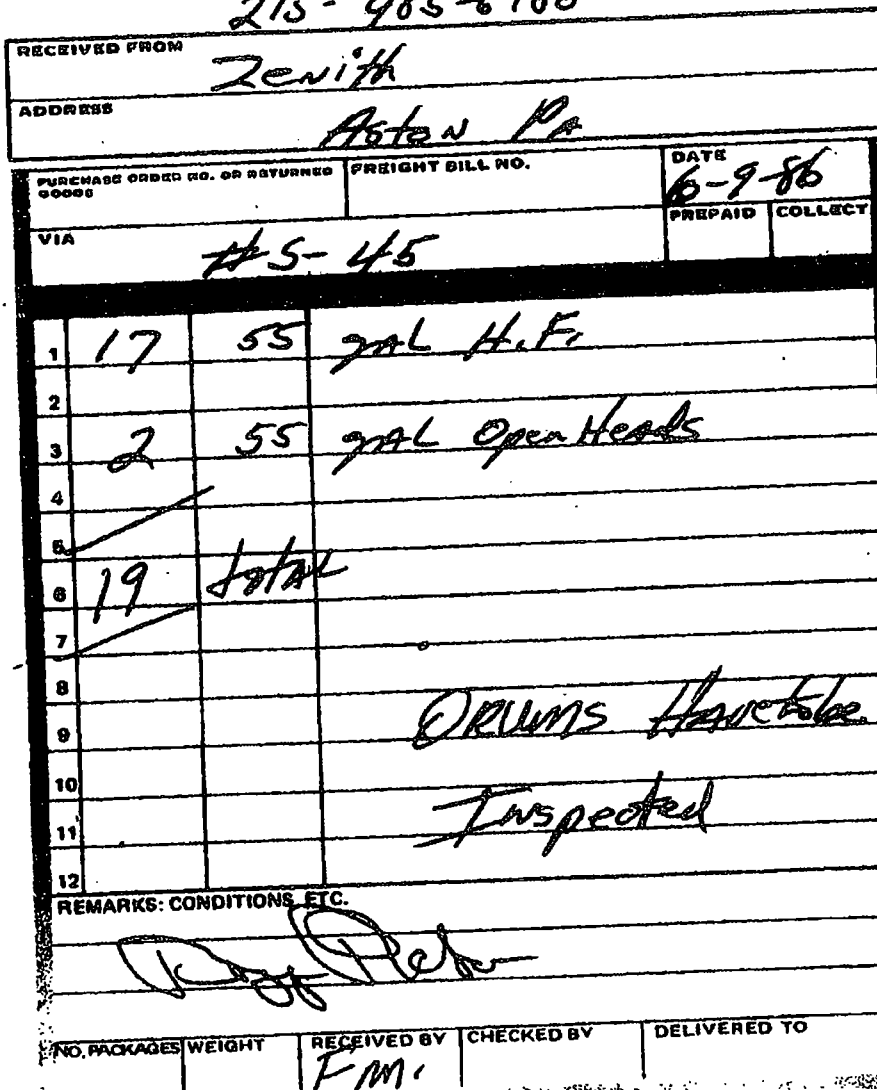 RECEIVED FROM
Zenith
ADDRESS
Aston Pa
PURCHASE ORDER NO. OR RETURNED GOODS
FREIGHT BILL NO.
DATE
6-9-86
PREPAID COLLECT
VIA
#S-45
1 17 55 gAL H.F.
2
3 2 55 gAL Open Heads
4
5
6 19 total
7
8
9 DRUMS Have to be
10
11 Inspected
12
REMARKS: CONDITIONS, ETC.
NO. PACKAGES WEIGHT RECEIVED BY CHECKED BY DELIVERED TO
F.M.